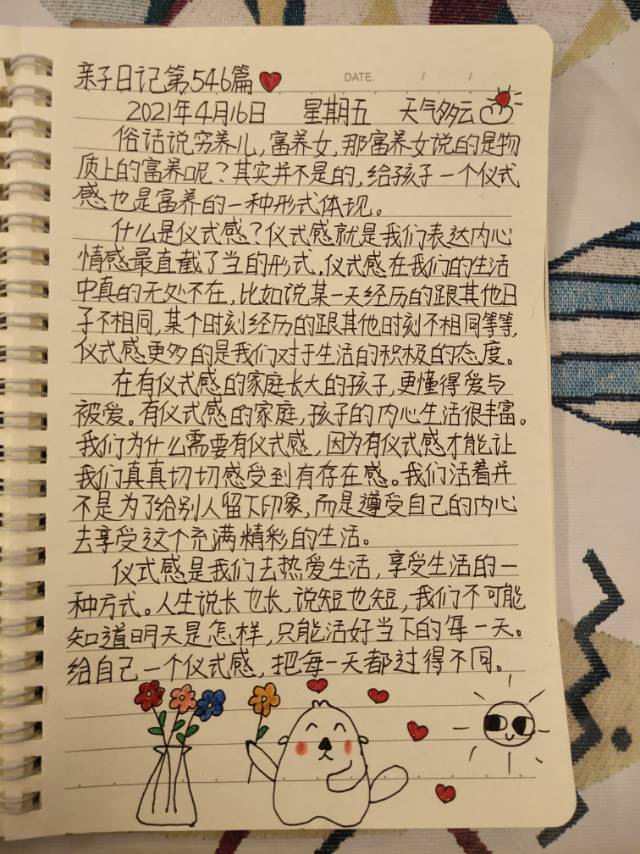 亲子日记第546篇
DATE. / /
2021年4月16日 星期五 天气多云
俗话说穷养儿，富养女，那富养女说的是物
质上的富养呢？其实并不是的，给孩子一个仪式
感也是富养的一种形式体现。
什么是仪式感？仪式感就是我们表达内心
情感最直截了当的形式，仪式感在我们的生活
中真的无处不在，比如说某一天经历的跟其他日
子不相同，某个时刻经历的跟其他时刻不相同等等，
仪式感更多的是我们对于生活的积极的态度。
在有仪式感的家庭长大的孩子，更懂得爱与
被爱。有仪式感的家庭，孩子的内心生活很丰富。
我们为什么需要有仪式感，因为有仪式感才能让
我们真真切切感受到有存在感。我们活着并
不是为了给别人留下印象，而是遵受自己的内心
去享受这个充满精彩的生活。
仪式感是我们去热爱生活，享受生活的一
种方式。人生说长也长，说短也短，我们不可能
知道明天是怎样，只能活好当下的每一天。
给自己一个仪式感，把每一天都过得不同。